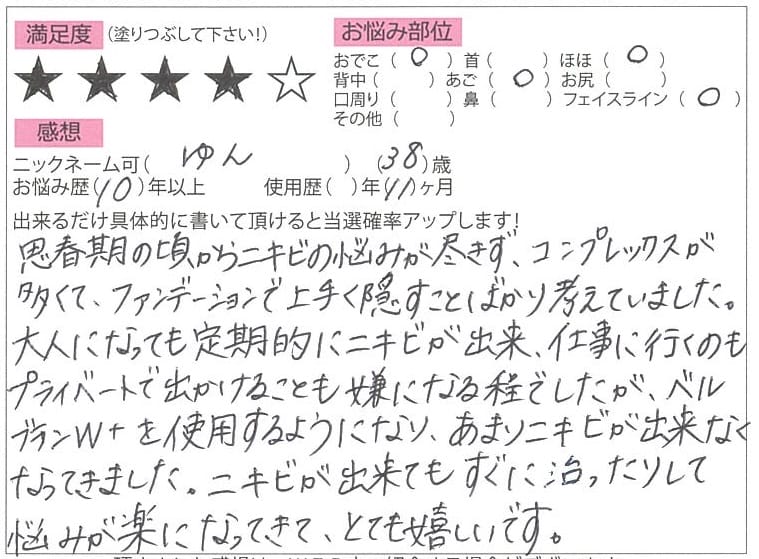 満足度 (塗りつぶして下さい!)
★★★★☆
お悩み部位
おでこ( ○ ) 首( ) ほほ( ○ )
背中( ) あご( ○ ) お尻( )
口周り( ) 鼻( ) フェイスライン( ○ )
その他( )
感想
ニックネーム可( ゆん ) (38)歳
お悩み歴(10)年以上 使用歴( )年(11)ヶ月
出来るだけ具体的に書いて頂けると当選確率アップします!
思春期の頃からニキビの悩みが尽きず、コンプレックスが
多くて、ファンデーションで上手く隠すことばかり考えていました。
大人になっても定期的にニキビが出来、仕事に行くのも
プライベートで出かけることも嫌になる程でしたが、ベル
ブランW+を使用するようになり、あまりニキビが出来なく
なってきました。ニキビが出来てもすぐに治ったりして
悩みが楽になってきて、とても嬉しいです。